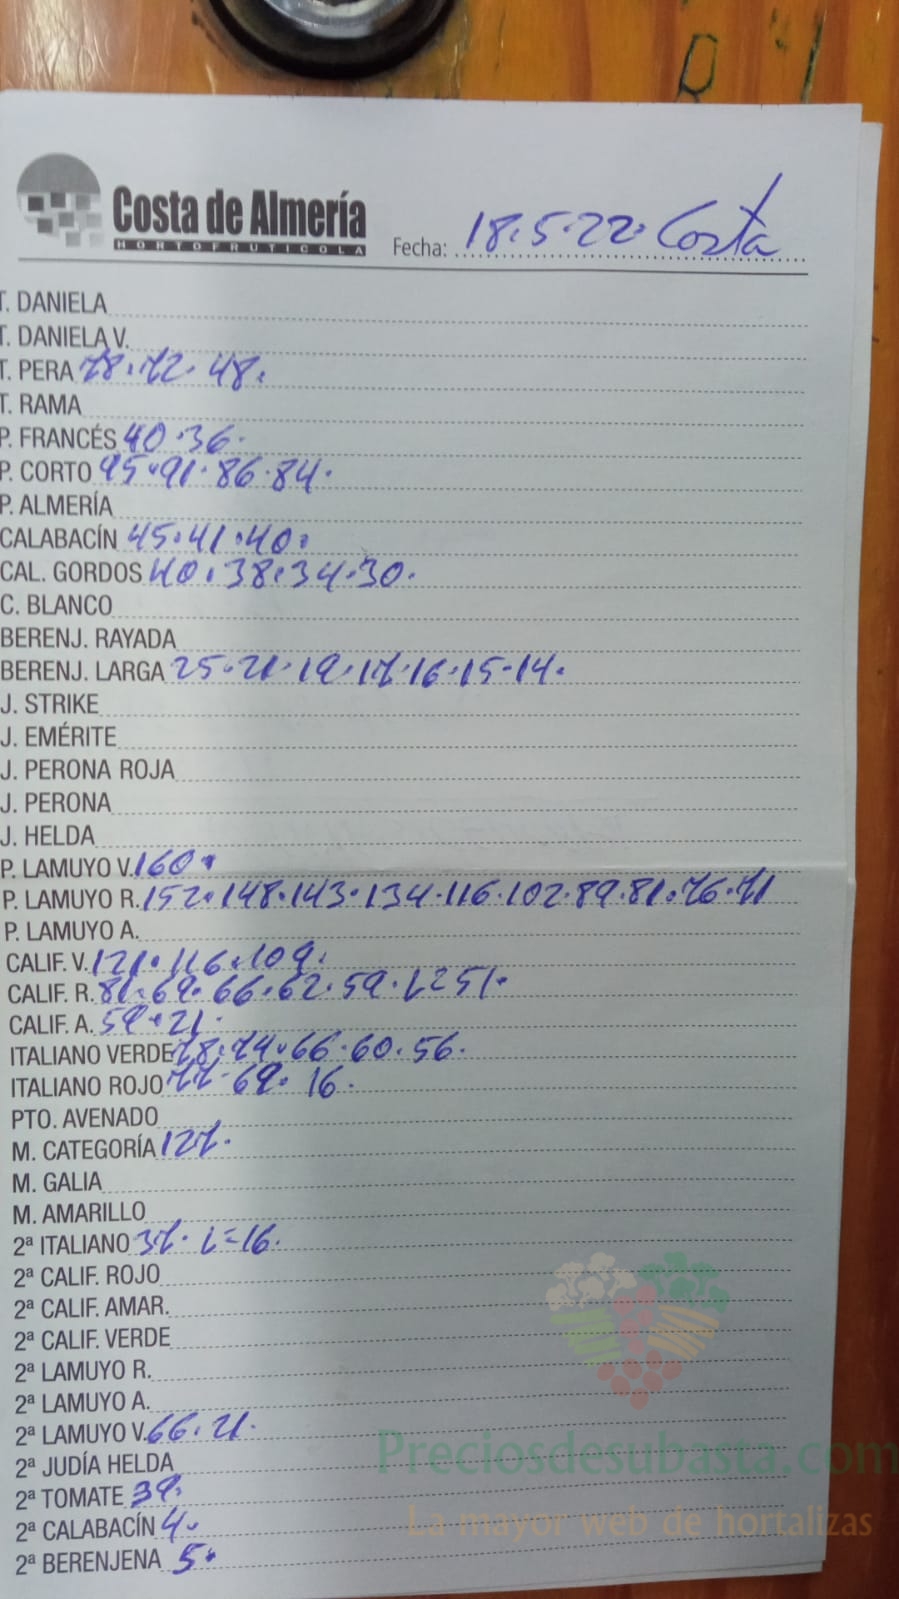 Costa de Almería
HORTOFRUTICOLA
Fecha: 18.5.22. Costa
T. DANIELA
T. DANIELA V.
T. PERA 78.72.48.
T. RAMA
P. FRANCÉS 40.36.
P. CORTO 95.91.86.84.
P. ALMERÍA
CALABACÍN 45.41.40.
CAL. GORDOS 40.38.34.30.
C. BLANCO
BERENJ. RAYADA
BERENJ. LARGA 25.21.19.17.16.15.14.
J. STRIKE
J. EMÉRITE
J. PERONA ROJA
J. PERONA
J. HELDA
P. LAMUYO V. 160.
P. LAMUYO R. 152.148.143.134.116.102.89.81.76.71
P. LAMUYO A.
CALIF. V. 121.116.109.
CALIF. R. 81.69.66.62.59.L=51.
CALIF. A. 59.21.
ITALIANO VERDE 78.74.66.60.56.
ITALIANO ROJO 77.69.16.
PTO. AVENADO
M. CATEGORÍA 127.
M. GALIA
M. AMARILLO
2ª ITALIANO 37. L=16.
2ª CALIF. ROJO
2ª CALIF. AMAR.
2ª CALIF. VERDE
2ª LAMUYO R.
2ª LAMUYO A.
2ª LAMUYO V. 66.21.
2ª JUDÍA HELDA
2ª TOMATE 39.
2ª CALABACÍN 4.
2ª BERENJENA 5.
Preciosdesubasta.com
La mayor web de hortalizas